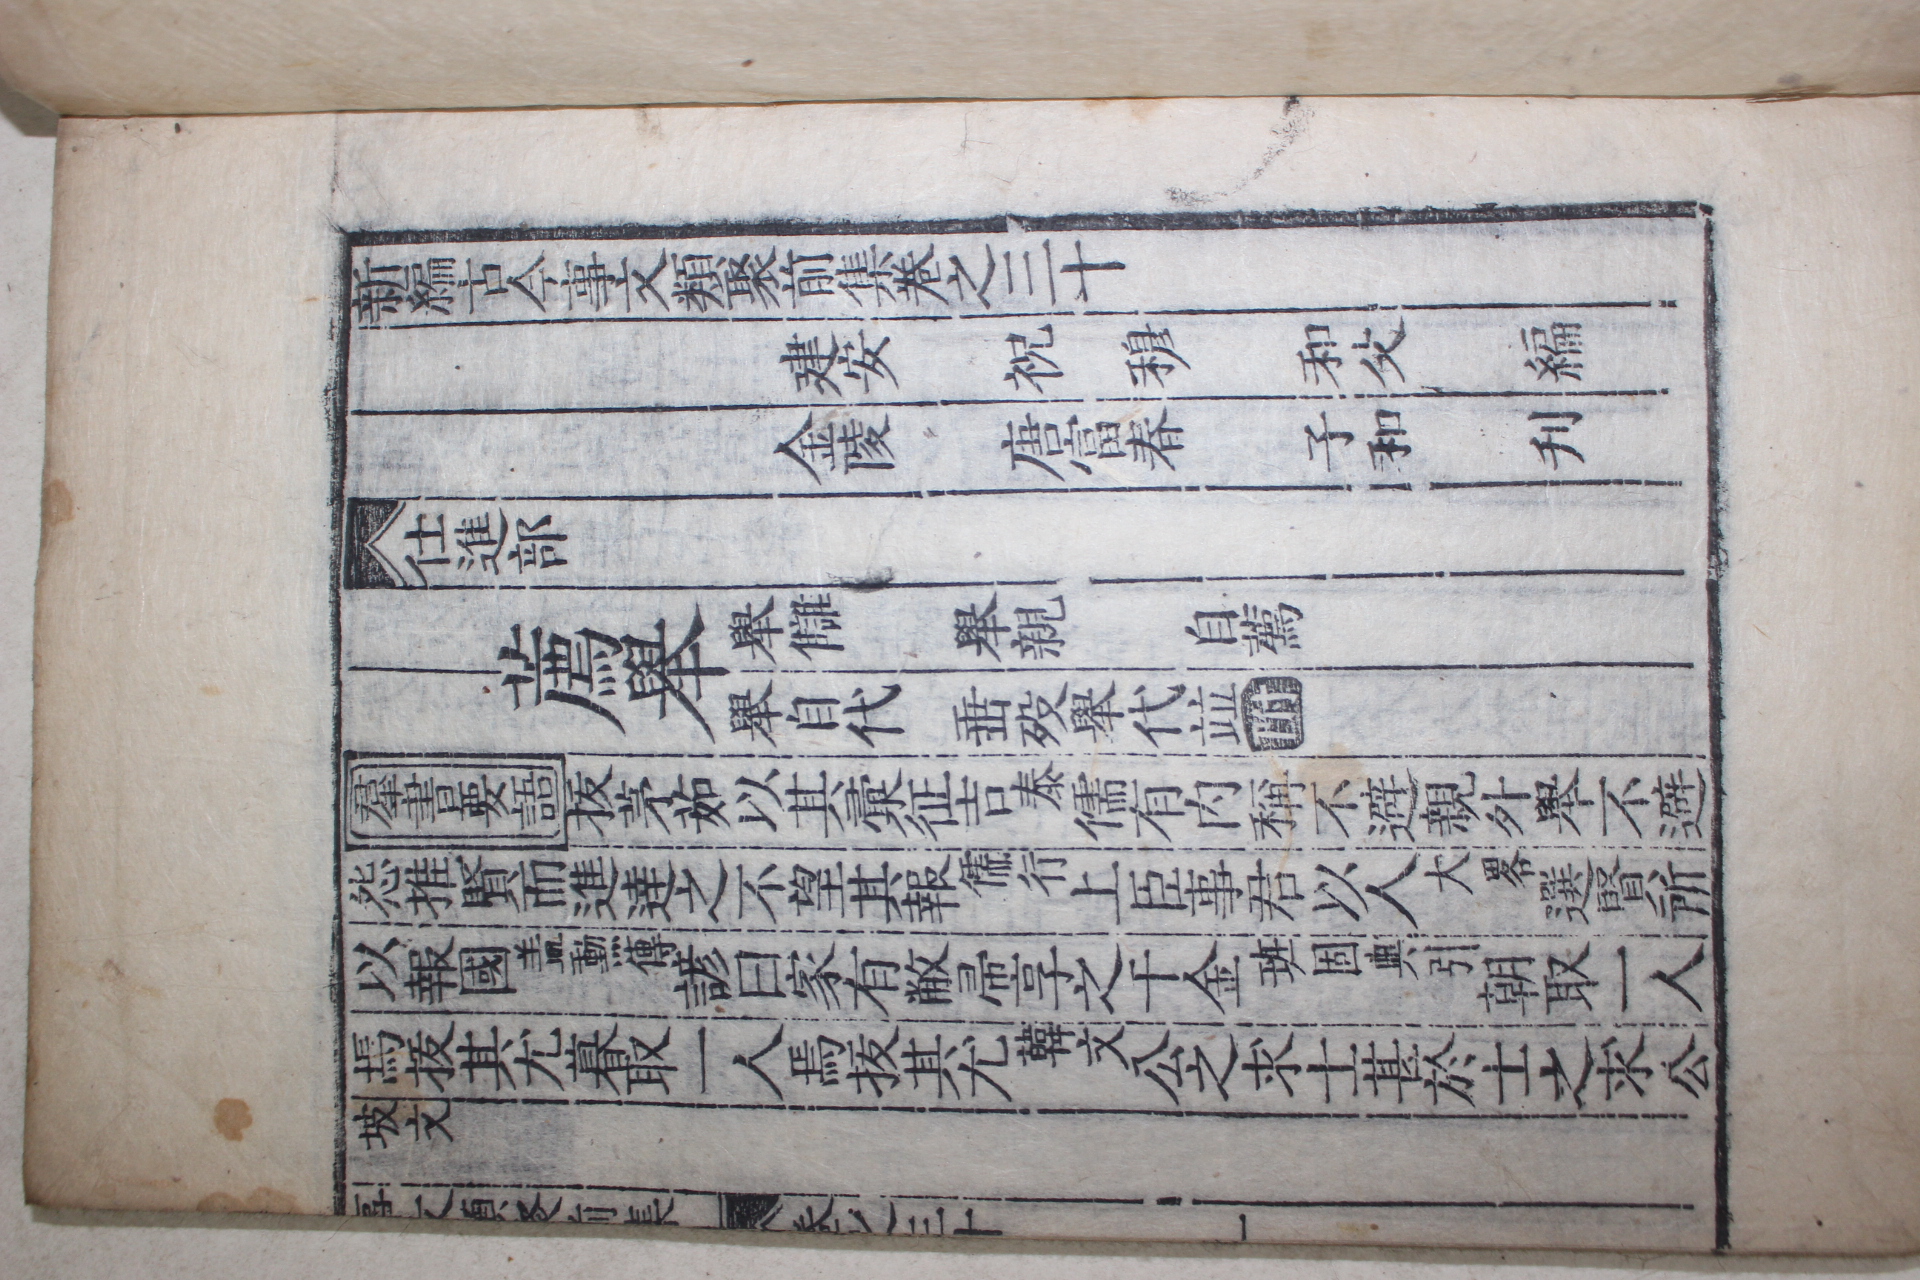 新編古今事文類聚前集卷之三十
建安 祝 穆 和父 編
金陵 唐富春 子和 刋
仕進部
薦舉 舉讎 舉親 自薦
舉自代 垂歿舉代並附
羣書要語 拔茅茹以其彙征吉泰儒有内稱不避親外舉不避
怨推賢而進達之不望其報儒行上臣事君以人大畧選賢所
以報國盖勳傳諺曰家有敝帚享之千金班固典引朝取一人
焉拔其尤暮取一人焉拔其尤韓文公之求士甚於士之求公
坡文
事文類聚前集 卷之三十 一